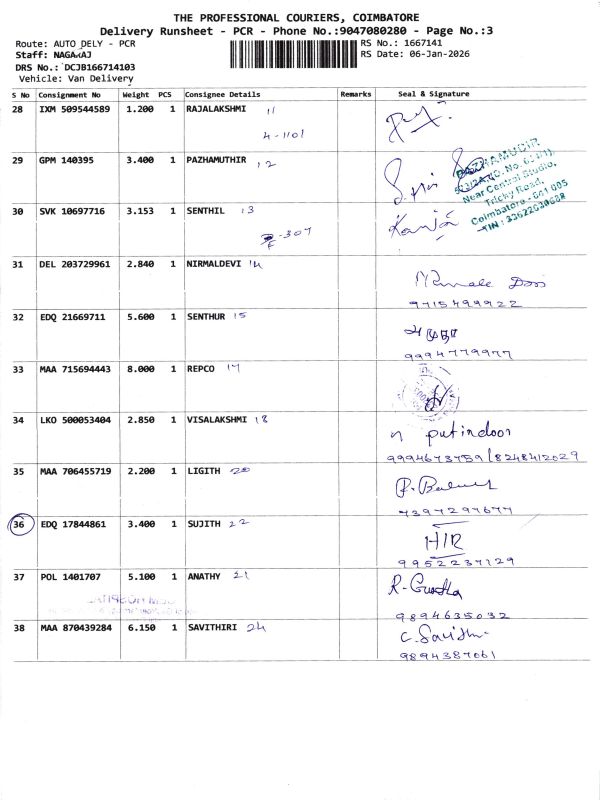 THE PROFESSIONAL COURIERS, COIMBATORE
Delivery Runsheet - PCR - Phone No.:9047080280 - Page No.:3
Route: AUTO DELY - PCR RS No.: 1667141
Staff: NAGARAJ RS Date: 06-Jan-2026
DRS No.: DCJB166714103
Vehicle: Van Delivery
S No Consignment No Weight PCS Consignee Details Remarks Seal & Signature
28 IXM 509544589 1.200 1 RAJALAKSHMI 11
4-1101
29 GPM 140395 3.400 1 PAZHAMUTHIR 12
PAZHAMUDIR
Near Central Studio,
Trichy Road,
Coimbatore - 641 005
TIN : 33622630688
30 SVK 10697716 3.153 1 SENTHIL 13
F-307
31 DEL 203729961 2.840 1 NIRMALDEVI 14
9715499922
32 EDQ 21669711 5.600 1 SENTHUR 15
அமுதா
9994779977
33 MAA 715694443 8.000 1 REPCO 17
34 LKO 500053404 2.850 1 VISALAKSHMI 18
n putindoor
9994673759/8248412029
35 MAA 706455719 2.200 1 LIGITH 20
7397297677
36 EDQ 17844861 3.400 1 SUJITH 22
H/R
9952237129
37 POL 1401707 5.100 1 ANATHY 21
9894635032
38 MAA 870439284 6.150 1 SAVITHIRI 24
9894387061